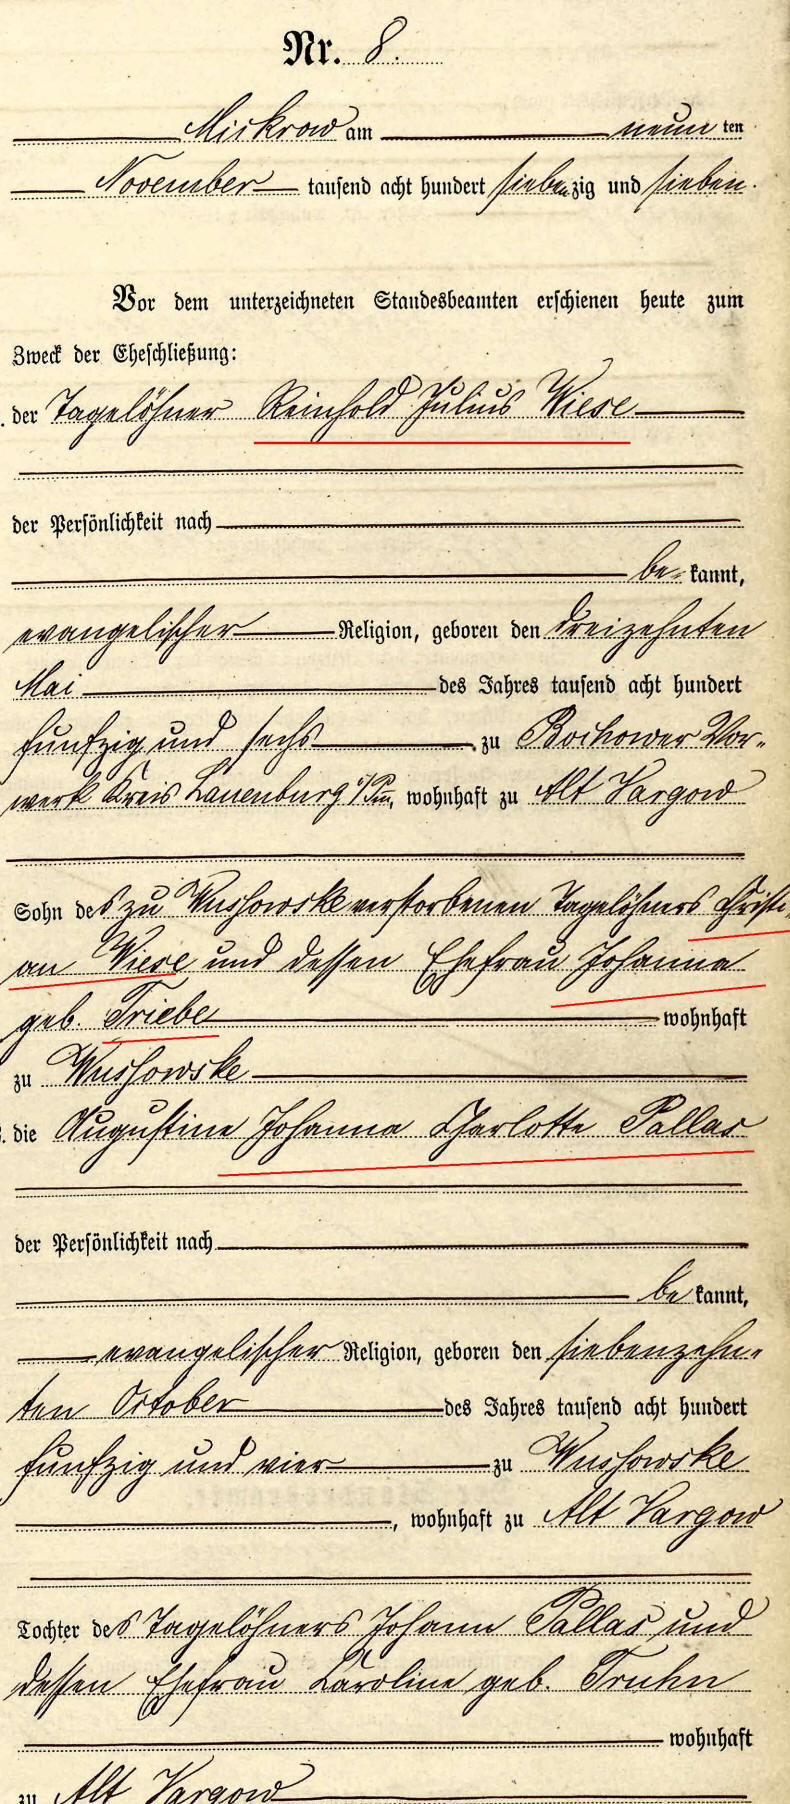 Nr. 8.
Mickrow am neun ten
November tausend acht hundert siebenzig und sieben.
Vor dem unterzeichneten Standesbeamten erschienen heute zum
Zweck der Eheschließung:
der Tagelöhner Reinhold Julius Wiese
der Persönlichkeit nach
be- kannt,
evangelischer Religion, geboren den dreizehnten
Mai des Jahres tausend acht hundert
funfzig und sechs zu Bochower Vor-
werk Kreis Lauenburg i/Pm, wohnhaft zu Alt Vargow
Sohn des zu Wussowske verstorbenen Tagelöhners Christi-
an Wiese und dessen Ehefrau Johanna
geb. Triebe wohnhaft
zu Wussowske
die Augustine Johanna Charlotte Pallas
der Persönlichkeit nach
be kannt,
evangelischer Religion, geboren den siebenzehn-
ten October des Jahres tausend acht hundert
funfzig und vier zu Wussowske
, wohnhaft zu Alt Vargow
Tochter des Tagelöhners Johann Pallas und
dessen Ehefrau Caroline geb. Truhn
wohnhaft
zu Alt Vargow